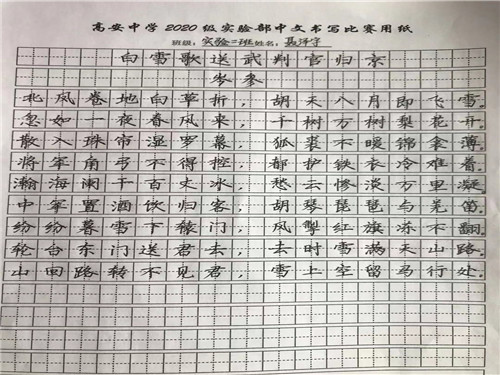 高安中学2020级实验部中文书写比赛用纸
班级：实验二班姓名：聂泽宇
白雪歌送武判官归京
岑参
北风卷地白草折，胡天八月即飞雪。
忽如一夜春风来，千树万树梨花开。
散入珠帘湿罗幕，狐裘不暖锦衾薄。
将军角弓不得控，都护铁衣冷难着。
瀚海阑干百丈冰，愁云惨淡万里凝。
中军置酒饮归客，胡琴琵琶与羌笛。
纷纷暮雪下辕门，风掣红旗冻不翻。
轮台东门送君去，去时雪满天山路。
山回路转不见君，雪上空留马行处。